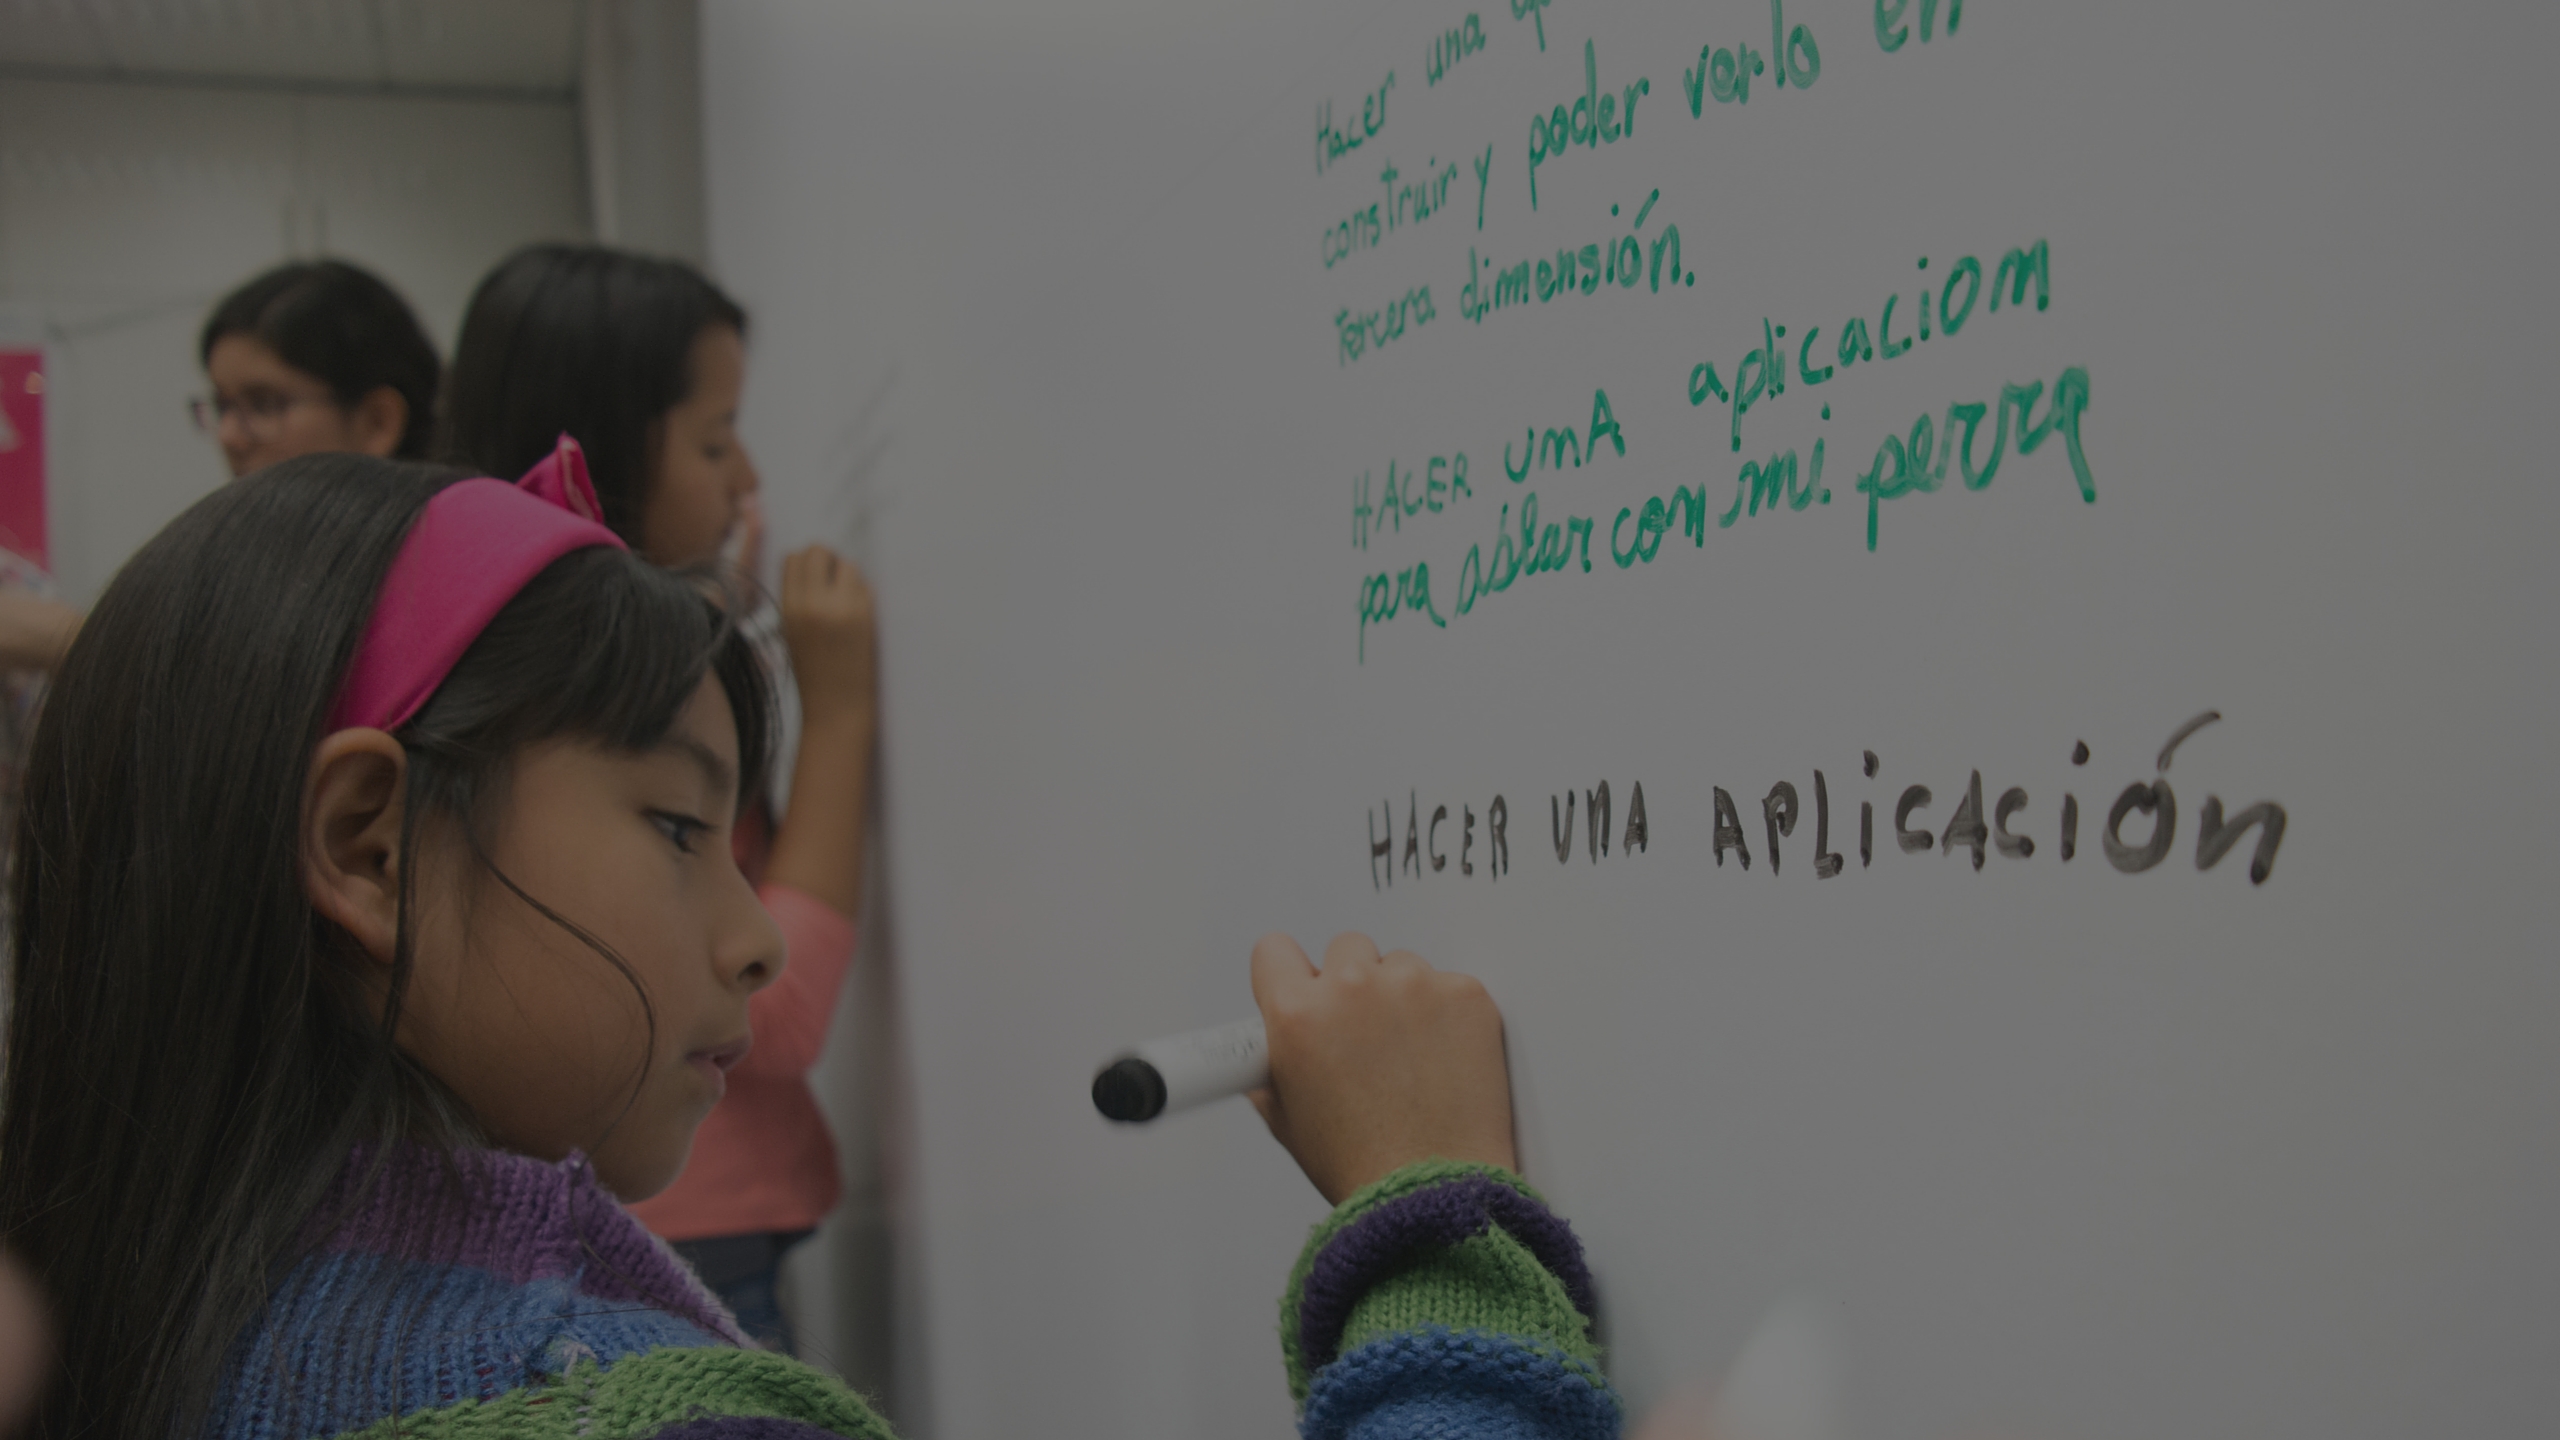 Hacer una
construir y poder verlo en
tercera dimensión.
HACER UMA aplicaciom
para ablar con mi perra
HACER UNA APLiCACión